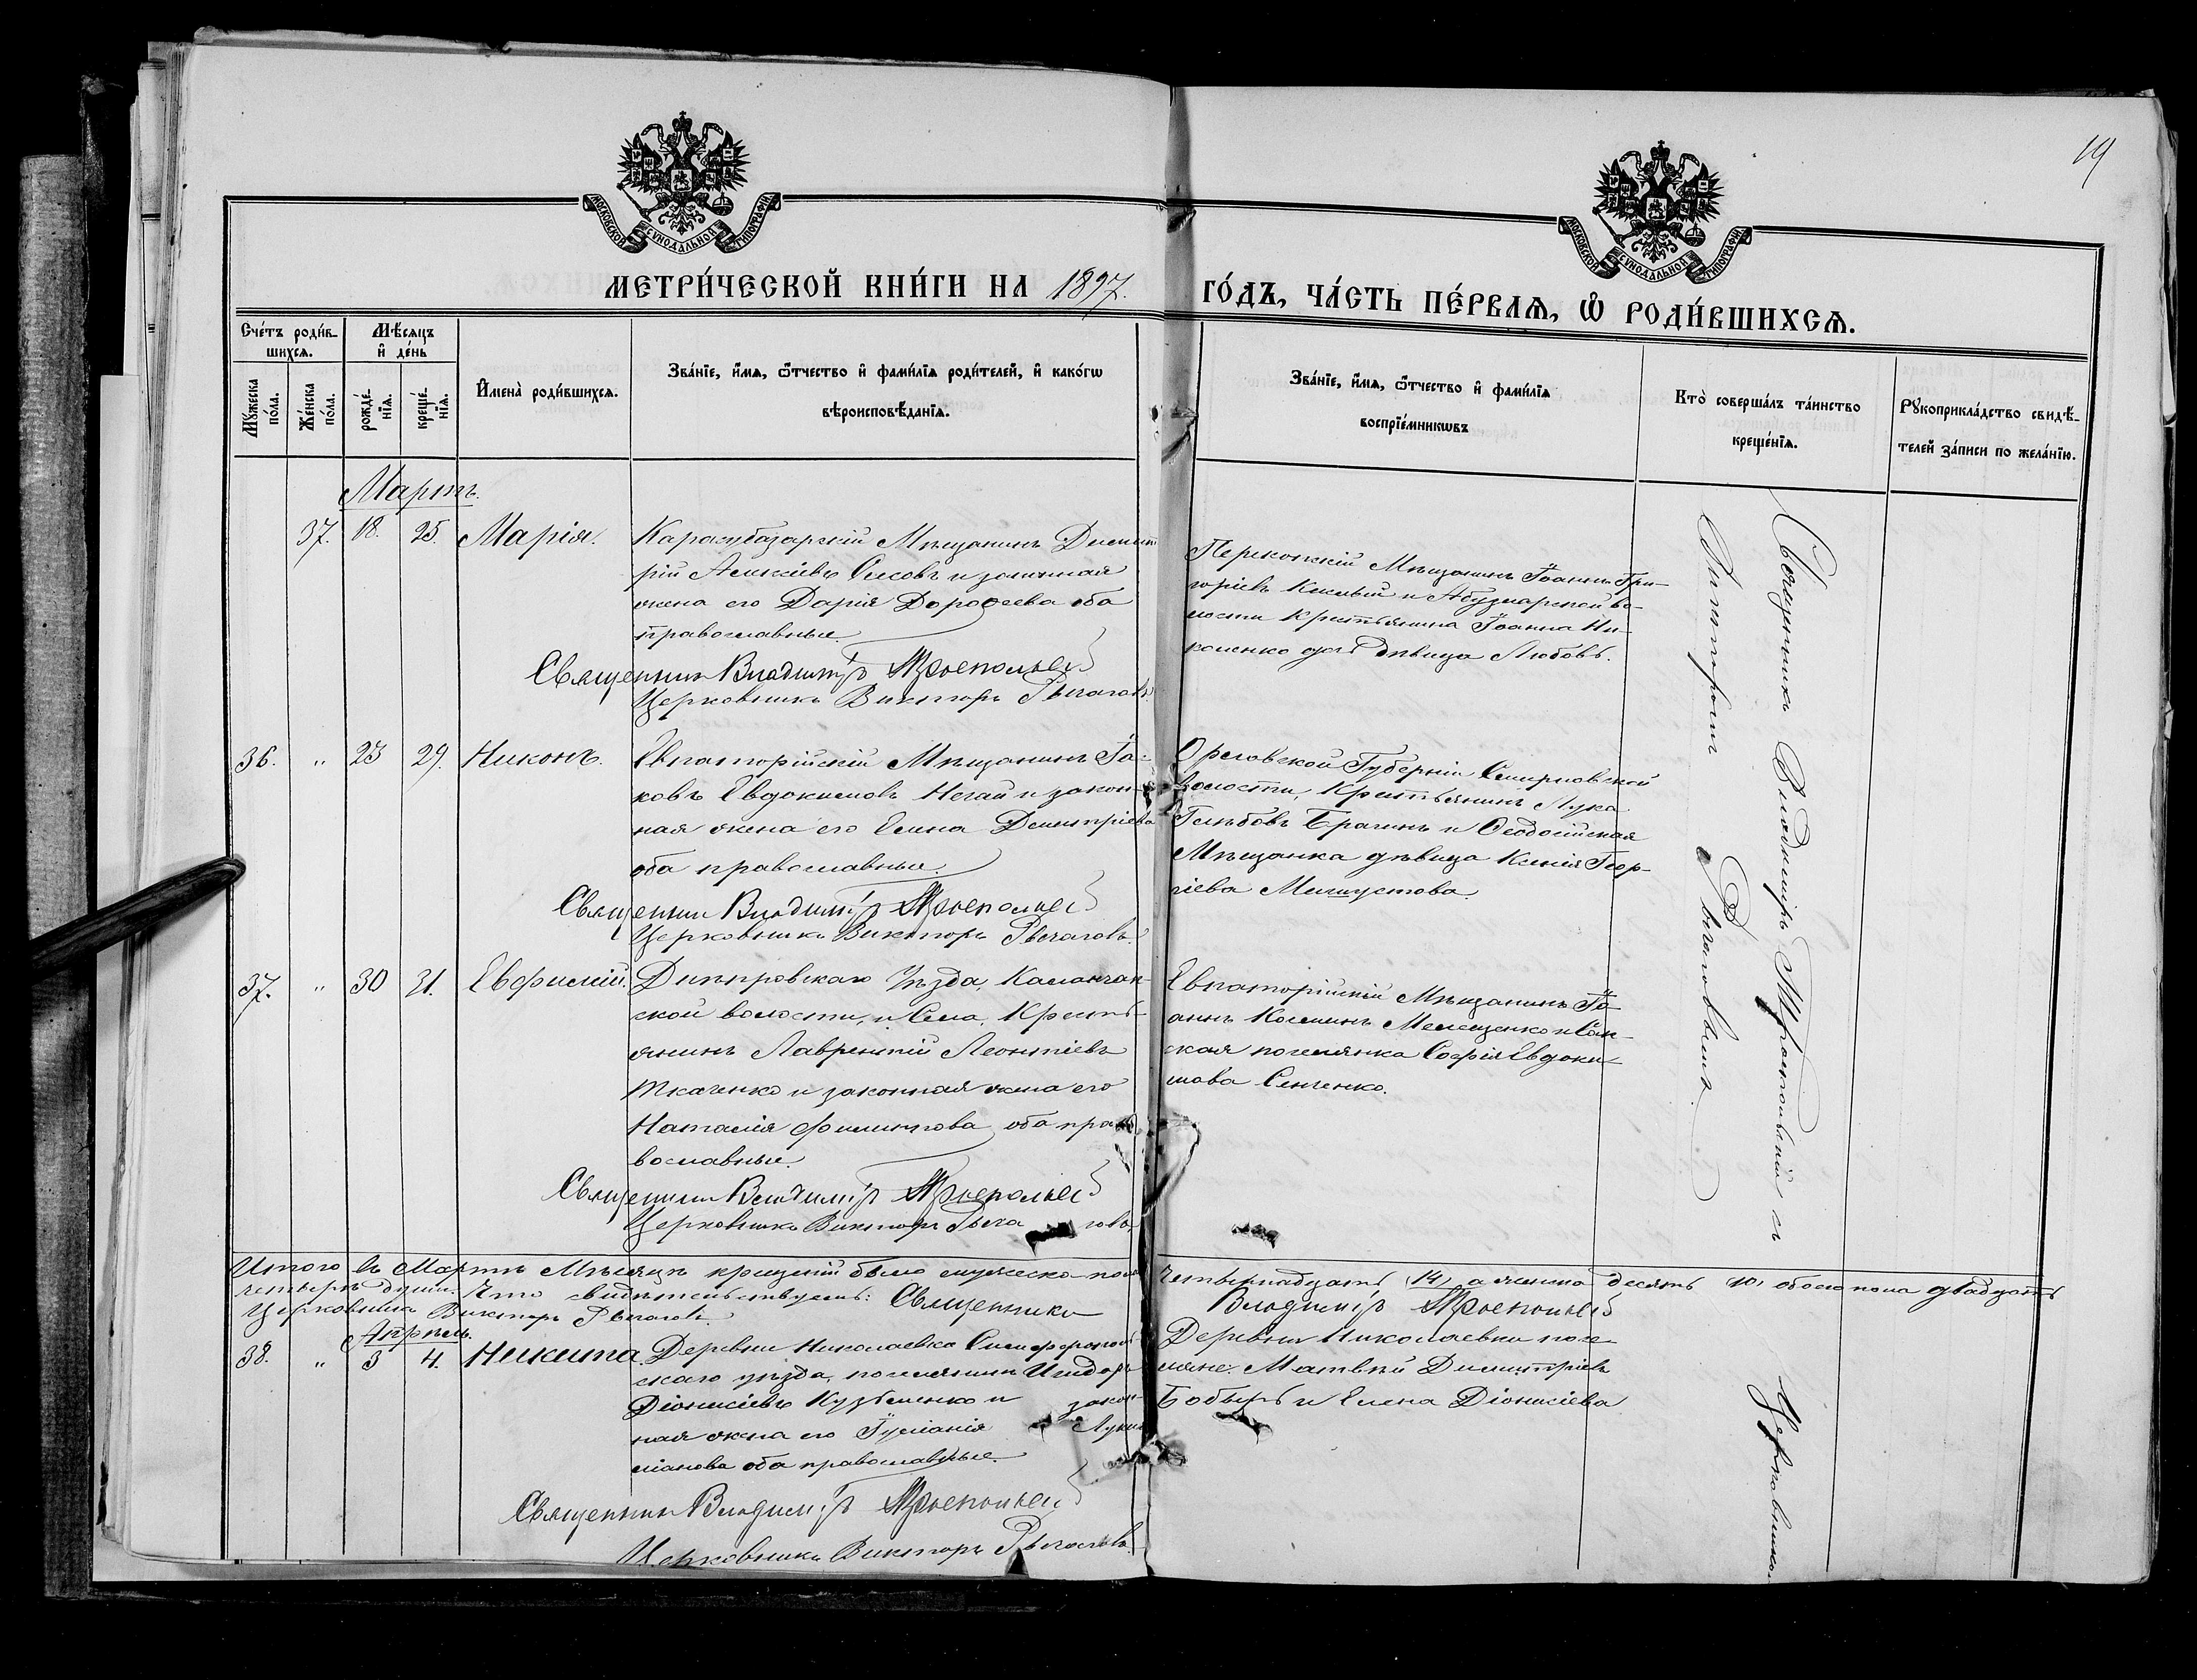 19
МОСКОВСКОЙ СѴНОДАЛЬНОЙ ТИПОГРАФІИ
МОСКОВСКОЙ СѴНОДАЛЬНОЙ ТИПОГРАФІИ
МЕТРИ́ЧЕСКОЙ КНИ́ГИ НА 1897. ГО́ДЪ, ЧА́СТЬ ПЕ́РВАѦ, Ѡ҆ РОДИ́ВШИХСѦ.
Сче́тъ роди́в-
шихсѧ.
Мꙋ́жеска по́ла.
Же́нска по́ла.
Мѣ́сѧцъ
и҆ де́нь
рожде́-
нїѧ.
креще́-
нїѧ.
И҆мена̀ роди́вшихсѧ.
Зва́нїе, и҆́мѧ, ѻ҆́тчество и҆ фами́лїѧ роди́телей, и҆ како́гѡ
вѣроисповѣ́данїѧ.
Зва́нїе, и҆́мѧ, ѻ҆́тчество и҆ фами́лїѧ
воспрїе́мникѡвъ
Кто̀ соверша́лъ та́инство
креще́нїѧ.
Рꙋкоприкла́дство свидѣ́-
телей за́писи по жела́нїю.
Мартъ.
37. 18. 25. Марія.
Карасубазарскій Мѣщанинъ Димит
рій Алексіевъ и законная
жена его Дарія Дороѳеева оба
православные.
Священникъ Владиміръ
Церковникъ Викторъ Рычаговъ.
Перекопскій Мѣщанинъ Іоаннъ Гри-
горіевъ и во-
лости Крестьянина Іоанна Ни-
коленко дочь дѣвица Любовь.
36. „ 23 29. Никонъ.
Евпаторійскій Мѣщанинъ Іа-
ковъ Евдокимовъ Нечай и закон-
ная жена его Елена Димитріева
оба православные.
Священникъ Владиміръ
Церковникъ Викторъ Рычаговъ.
Орловской Губерніи Смирновской
волости, Крестьянинъ Лука
Глѣбовъ Брагинъ и Ѳеодосійская
Мѣщанка дѣвица Ксенія Геор-
гіева Мишустова.
37. „ 30 31. Евфимій.
Днѣпровскаго Уѣзда, Каланчак-
ской волости, и Села, Кресть-
янинъ Лаврентій Леонтіевъ
Ткаченко и законная жена его
Наталія Филиппова оба пра-
вославные.
Священникъ Владиміръ
Церковникъ Викторъ Рычаговъ.
Евпаторійскій Мѣщанинъ Іо-
аннъ Мелещенко и
ская поселянка Софія Евдоки-
мова Сенченко.
Священникъ Владиміръ съ
Церковникомъ
Викторомъ Рычаговымъ.
Итого въ Мартѣ Мѣсяцѣ крещеній было мужеско-пола четырнадцать (14) а женска десять (10) обоего пола двадцать
четыре души. Что свидѣтельствуемъ: Священникъ Владиміръ
Церковникъ Викторъ Рычаговъ.
Апрѣль.
38. „ 3 4. Никита.
Деревни Николаевка Симферополь
скаго уѣзда, поселянинъ Исидоръ
Діонисіевъ Кузьменко и закон-
ная жена его Іуліанія Луки-
оба православные.
Священникъ Владиміръ
Церковникъ Викторъ Рычаговъ.
Деревни Николаевки посе-
ляне: Матвѣй Димитріевъ
Бобырь и Елена Діонисіева